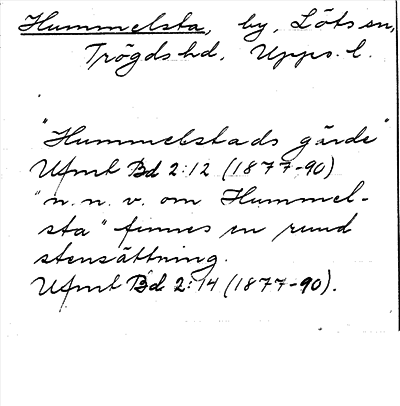 Hummelsta, by, Löts sn,
Trögds hd, Upps. l.
"Hummelstads gärde"
Ufmt Bd 2:12 (1877-90)
"n. n. v. om Hummel-
sta" finnes en rund
stensättning.
Ufmt Bd 2:14 (1877-90).